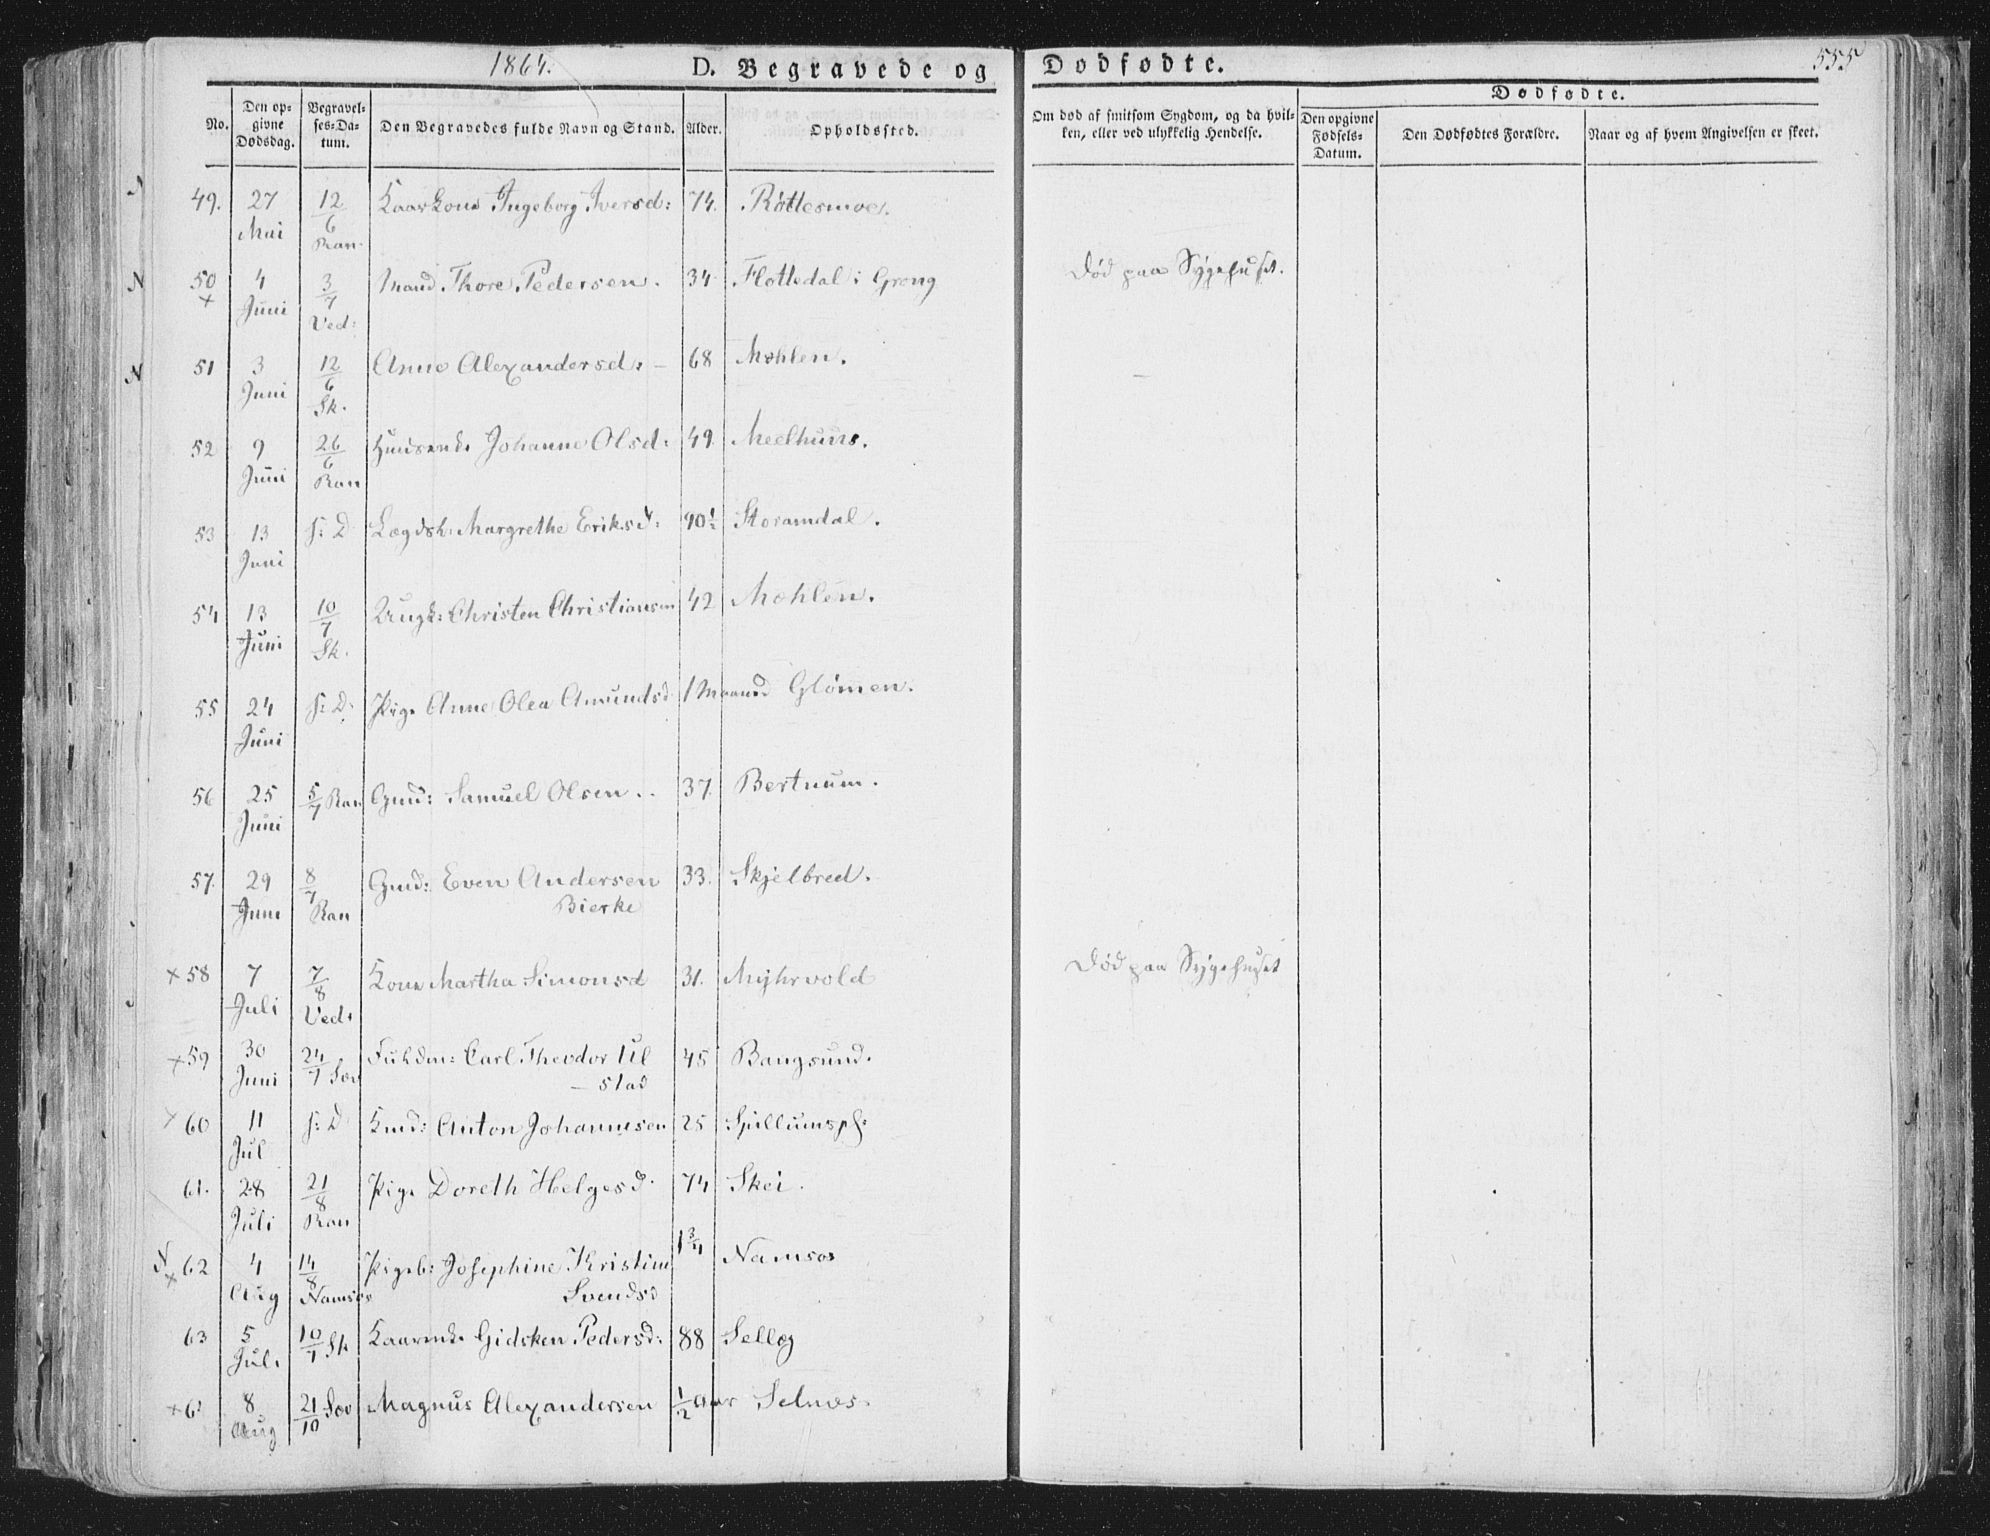 1864. D. Begravede og Dødfødte. 555
No. Den opgivne Dødsdag. Begravelses-Datum. Den Begravedes fulde Navn og Stand. Alder. Opholdssted. Om død af smitsom Sygdom, og da hvilken, eller ved ulykkelig Hendelse. Dødfødte. Den opgivne Fødsels-Datum. Den Dødfødtes Forældre. Naar og af hvem Angivelsen er skeet.
49. 27 Mai 12/6 Ran. Kaarkone Ingeborg Iversd: 74. Røttesmoe.
N 50 + 4 Juni 3/7 Ved: Mand Thore Pedersen. 34 Flottedal i Grong Død paa Sygehuset.
N 51 3 Juni 12/6 Sk. Anne Alexandersd: – 68 Mohlen.
52 9 Juni 26/6 Ran Johanne Olsd: 49. Meelhuus.
53 13 Juni s: D Lægdsl: Margrethe Eriksd: 90½ Storamdal.
54 13 Juni 10/7 Sk. Ungk: Christen Christiansen 42 Mohlen.
55 24 Juni s: D. Pige Anne Olea Amundsd 1 Maaned Glømen.
56 25 Juni 5/7 Ran Gmd: Samuel Olsen.. 37. Bertnum.
57. 29 Juni 8/7 Ran Gmd: Even Andersen Bierke 33. Skjelbred.
+ 58 7 Juli 7/8 Ved. Kone Martha Simonsd 31. Myhrvold Død paa Sygehuset
+ 59 30 Juni 24/7 Sæv Carl Theodor Ulstad 45 Bangsund.
+ 60 11 Jul s: D Anton Johannesen 25 Spillumspl:
61. 28 Juli 21/8 Ran Pige Doreth Helgesd. 74 Skei.
N + 62 4 Aug 14/8 Namsos Pigeb: Josephine Kristine Svendsd 1¾ Namsos
63 5 Jul. 10/7 Sk Gidsken Pedersd: 88 Selleg
+ 8 Aug 21/10 Sæv Magnus Alexandersen ½ Aar Selnæs.